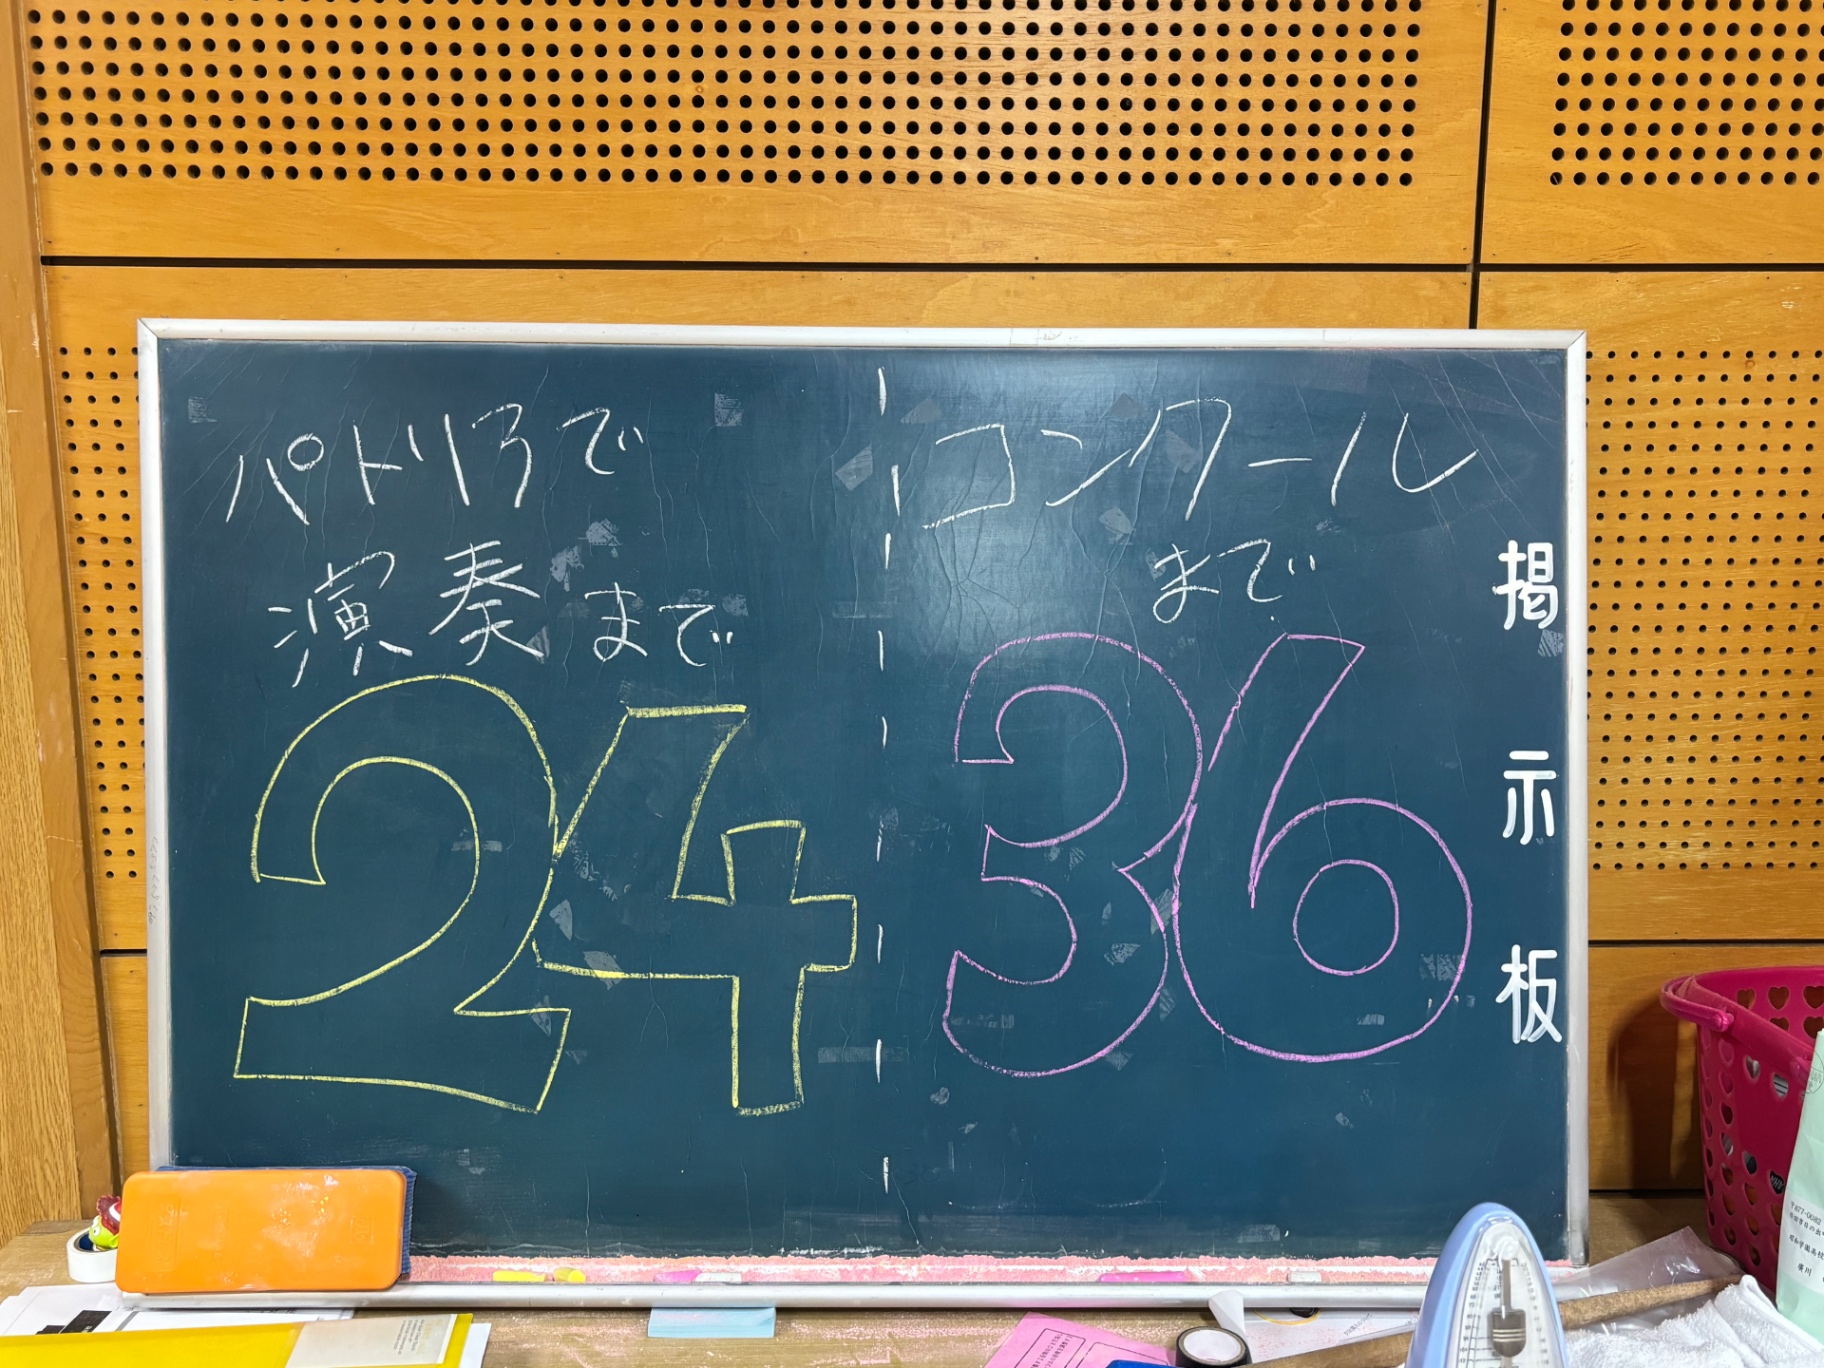 パトリアで
演奏まで
24
コンクール
まで
36
掲示板